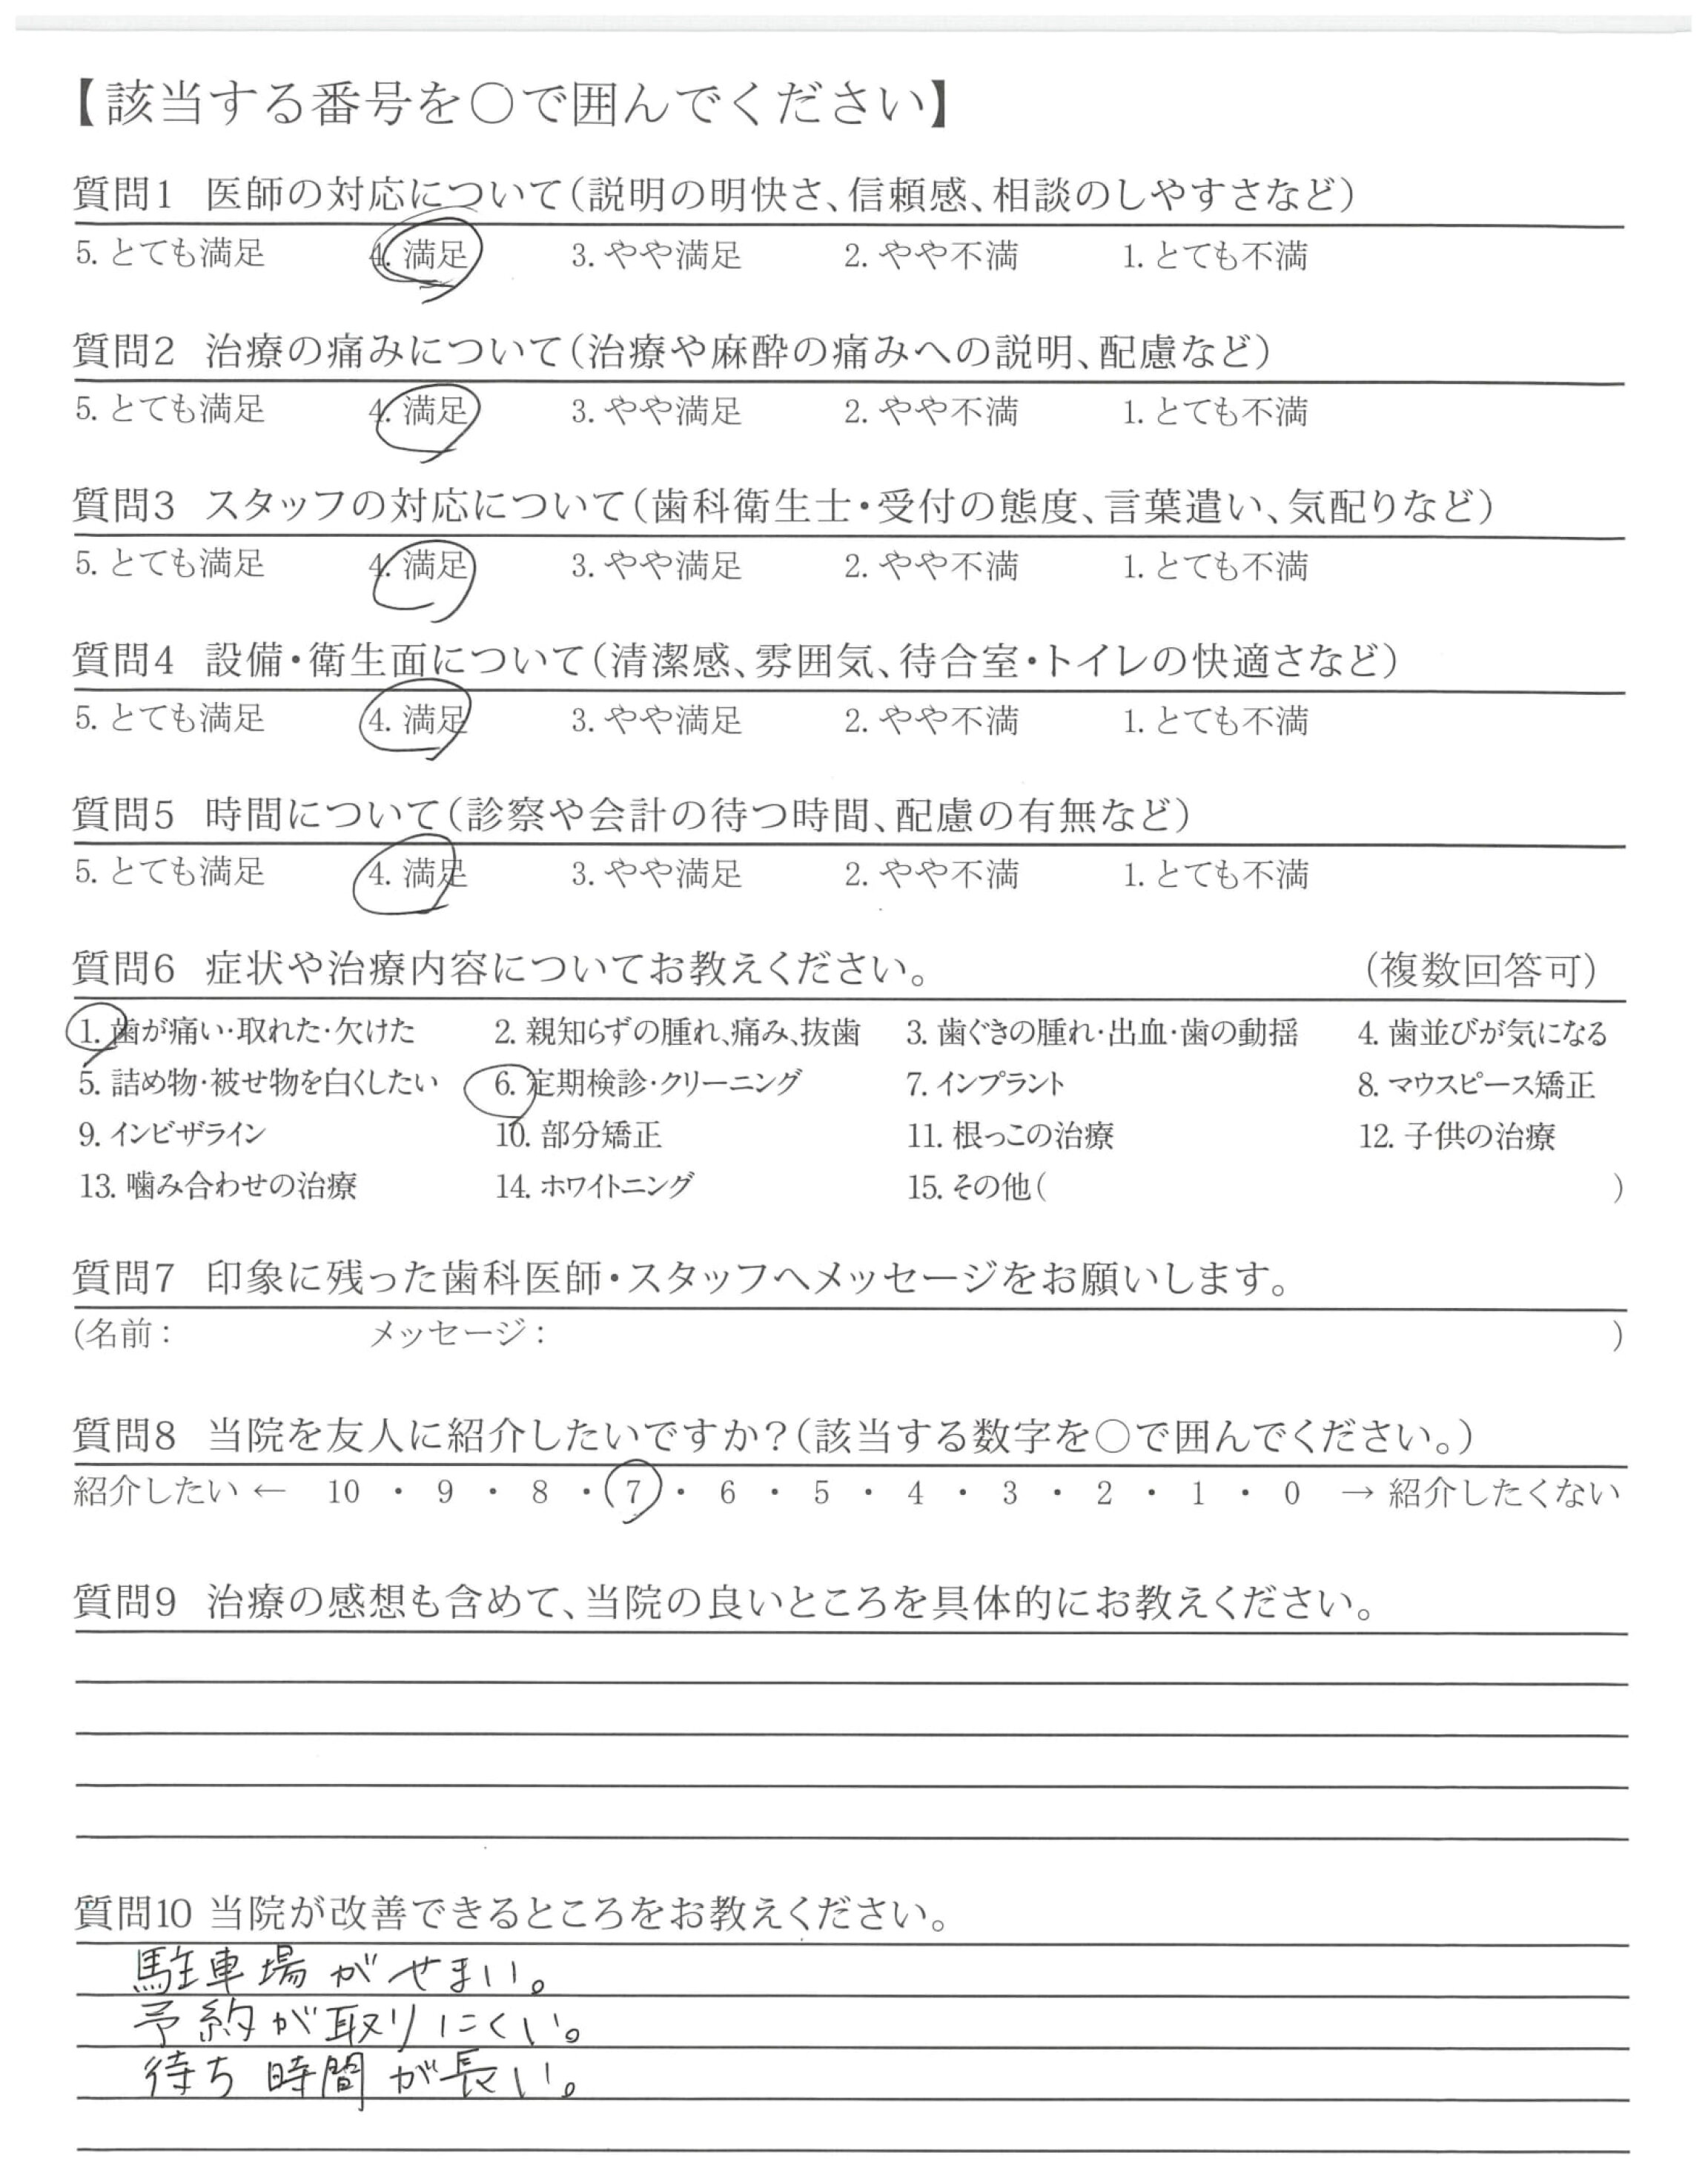 【該当する番号を○で囲んでください】
質問1 医師の対応について(説明の明快さ、信頼感、相談のしやすさなど)
5. とても満足 4. 満足 3. やや満足 2. やや不満 1. とても不満
質問2 治療の痛みについて(治療や麻酔の痛みへの説明、配慮など)
5. とても満足 4. 満足 3. やや満足 2. やや不満 1. とても不満
質問3 スタッフの対応について(歯科衛生士・受付の態度、言葉遣い、気配りなど)
5. とても満足 4. 満足 3. やや満足 2. やや不満 1. とても不満
質問4 設備・衛生面について(清潔感、雰囲気、待合室・トイレの快適さなど)
5. とても満足 4. 満足 3. やや満足 2. やや不満 1. とても不満
質問5 時間について(診察や会計の待つ時間、配慮の有無など)
5. とても満足 4. 満足 3. やや満足 2. やや不満 1. とても不満
質問6 症状や治療内容についてお教えください。 (複数回答可)
1. 歯が痛い・取れた・欠けた 2. 親知らずの腫れ、痛み、抜歯 3. 歯ぐきの腫れ・出血・歯の動揺 4. 歯並びが気になる
5. 詰め物・被せ物を白くしたい 6. 定期検診・クリーニング 7. インプラント 8. マウスピース矯正
9. インビザライン 10. 部分矯正 11. 根っこの治療 12. 子供の治療
13. 噛み合わせの治療 14. ホワイトニング 15. その他( )
質問7 印象に残った歯科医師・スタッフへメッセージをお願いします。
(名前: メッセージ: )
質問8 当院を友人に紹介したいですか?(該当する数字を○で囲んでください。)
紹介したい ← 10 ・ 9 ・ 8 ・ 7 ・ 6 ・ 5 ・ 4 ・ 3 ・ 2 ・ 1 ・ 0 → 紹介したくない
質問9 治療の感想も含めて、当院の良いところを具体的にお教えください。
質問10 当院が改善できるところをお教えください。
駐車場がせまい。
予約が取りにくい。
待ち時間が長い。